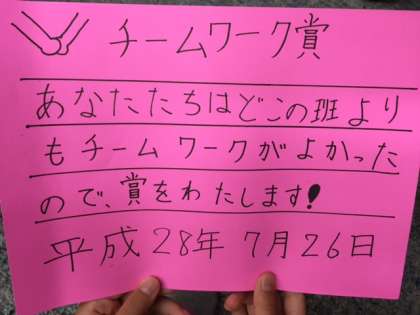 チームワーク賞
あなたたちはどこの班より
もチームワークがよかった
ので、賞をわたします!
平成28年7月26日